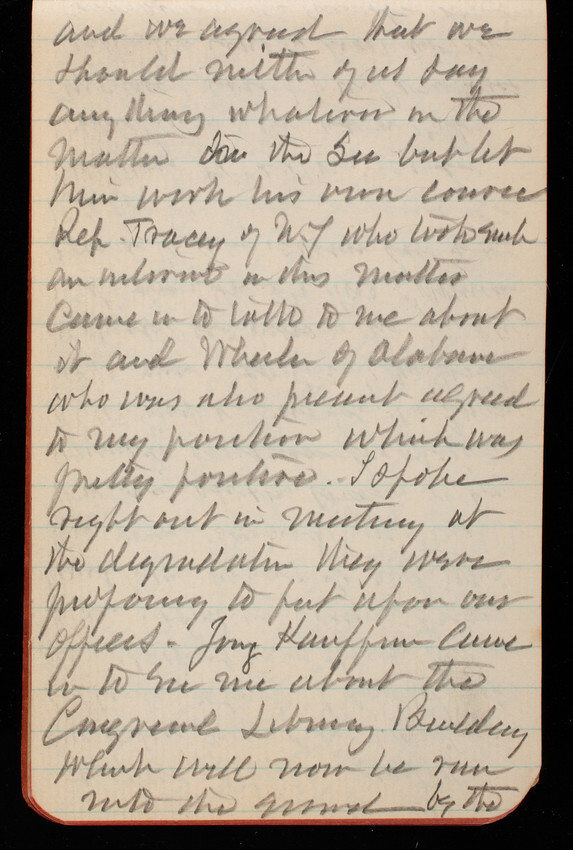 and we agreed that we
should neither of us say
anything whatever on the
matter to the Sec but let
him work his own course
Rep. Tracey of N.Y who took such
an interest in this matter
came in to talk to me about
it and Wheeler of Alabama
who was also present agreed
to my position which was
pretty positive. I spoke
right out in meeting at
the degradation they were
proposing to put upon our
officers - Kauffman came
in to see me about the
Congressl Library Building
which will now be run
into the ground by the